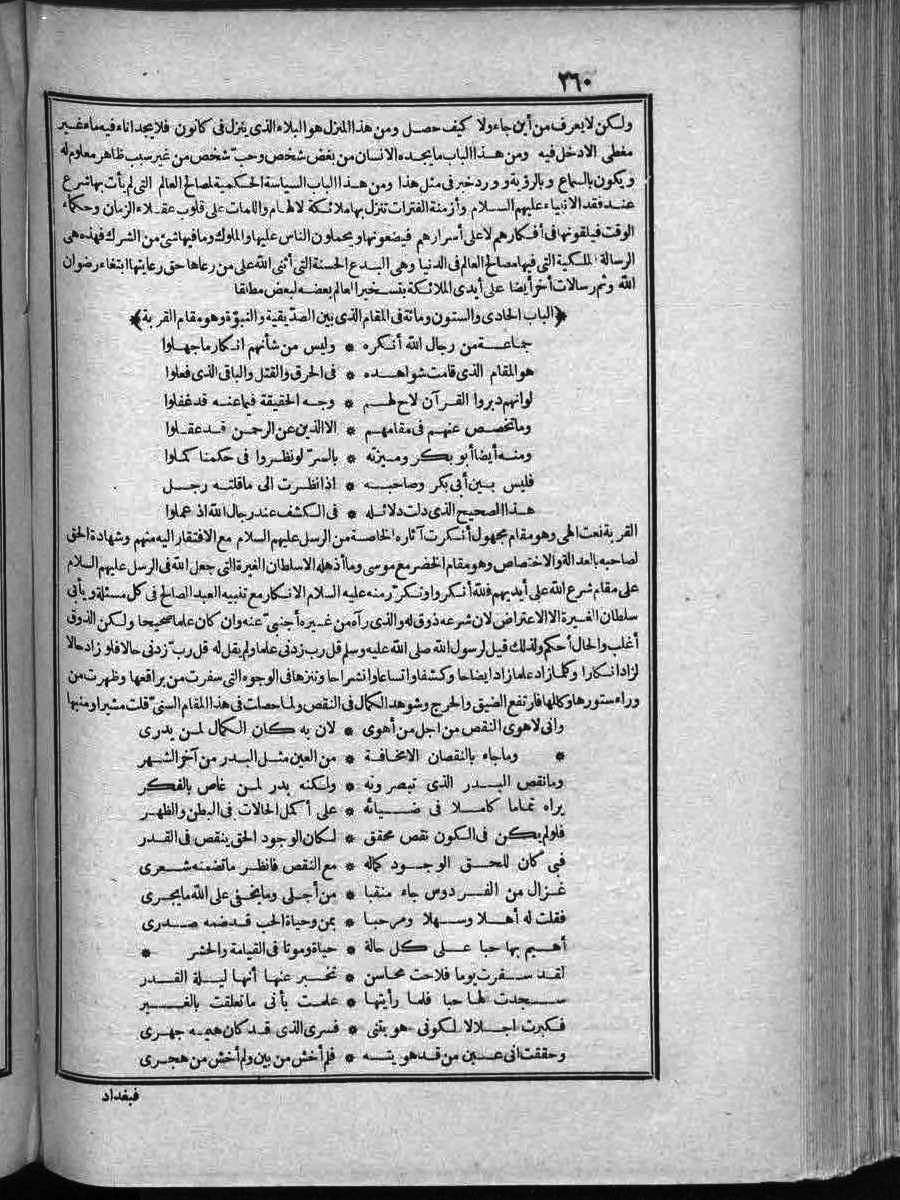 ٢٦٠
ولكن لا يعرف من أين جاء ولا كيف حصل ومن هذا المنزل هو البلاء الذى ينزل فى كانون فلا يجد اناء فيه ماء غير
مغطى الا دخل فيه ومن هذا الباب ما يجده الانسان من بغض شخص وحبّ شخص من غير سبب ظاهر معلوم له
ويكون بالسماع وبالرؤية وورد خبر فى مثل هذا ومن هذا الباب السياسة الحكمية لمصالح العالم التى لم يأت بها شرع
عند فقد الانبياء عليهم السلام وأزمنة الفترات تنزل بها ملائكة الالهام واللمات على قلوب عقلاء الزمان وحكماء
الوقت فيلقونها فى أفكارهم لا على أسرارهم فيضعونها ويحملون الناس عليها والملوك وما فيها شئ من الشرك فهذه هى
الرسالة الملكية التى فيها مصالح العالم فى الدنيا وهى البدع الحسنة التى أثنى الله على من رعاها حق رعايتها ابتغاء رضوان
الله وثم رسالات أخر أيضا على أيدى الملائكة بتسخير العالم بعضه لبعض مطلقا
﴿الباب الحادى والستون ومائة فى المقام الذى بين الصدّيقية والنبوّة وهو مقام القربة﴾
جماعة من رجال الله أنكره * وليس من شأنهم انكار ما جهلوا
هو المقام الذى قامت شواهده * فى الخرق والقتل والباقى الذى فعلوا
لو انهم دبروا القرآن لاح لهم * وجه الحقيقة فيما عنه قد غفلوا
وما تخصص عنهم فى مقامهم * الا الذين عن الرحمن قد عقلوا
ومنه أيضا أبو بكر وميزته * بالسرّ لو نظروا فى حكمنا كملوا
فليس بين أبى بكر وصاحبه * اذا نظرت الى ما قلته رجل
هذا الصحيح الذى دلت دلائله * فى الكشف عند رجال الله اذ عملوا
القربة نعت الهى وهو مقام مجهول أنكرت آثاره الخاصة من الرسل عليهم السلام مع الافتقار اليه منهم وشهادة الحق
لصاحبه بالعدالة والاختصاص وهو مقام الخضر مع موسى وما أذهله الا سلطان الغيرة التى جعل الله فى الرسل عليهم السلام
على مقام شرع الله على أيديهم فلله أنكروا وتكرّر منه عليه السلام الانكار مع تنبيه العبد الصالح فى كل مسئلة ويأبى
سلطان الغيرة الا الاعتراض لان شرعه ذوق له والذى رآه من غيره أجنبىّ عنه وان كان علما صحيحا ولكن الذوق
أغلب والحال أحكم ولذلك قيل لرسول الله صلى الله عليه وسلم قل رب زدنى علما ولم يقل له قل ربّ زدنى حالا فلو زاد حالا
لزاد انكارا وكلما زاد علما زاد ايضاحا وكشفا واتساعا وانشراحا وتنزها فى الوجوه التى سفرت من براقعها وظهرت من
وراء ستورها وكلها فارتفع الضيق والحرج وشوهد الكمال فى النقص ولما حصلت فى هذا المقام السنىّ قلت مشيرا ومنبها
وانى لاهوى النقص من اجل من أهوى * لان به كان الكمال لمن يدرى
* وما جاء بالنقصان الا مخافة * من العين مثل البدر من آخر الشهر
وما نقص البدر الذى تبصرونه * ولكنه بدر لمن غاص بالفكر
يراه تماما كاملا فى ضيائه * على أكمل الحالات فى البطن والظهر
فلو لم يكن فى الكون نقص محقق * لكان الوجود الحق ينقص فى القدر
فبى كان للحق الوجود كماله * مع النقص فانظر ما تضمنه شعرى
غزال من الفردوس جاء منقبا * من أجلى وما يخفى على الله ما يجرى
فقلت له أهلا وسهلا ومرحبا * بمن وحياة الحب قد ضمه صدرى
أهيم بها حبا على كل حالة * حياة وموتا فى القيامة والحشر *
لقد سفرت يوما فلاحت محاسن * تخبر عنها أنها ليلة القدر
سجدت لها حبا فلما رأيتها * علمت بأنى ما تعلقت بالغير
فكبرت اجلالا لكونى هويتى * فسرى الذى قد كان هيمه جهرى
وحققت انى عين من قد هويته * فلم أخش من بين ولم أخش من هجرى
فبغداد